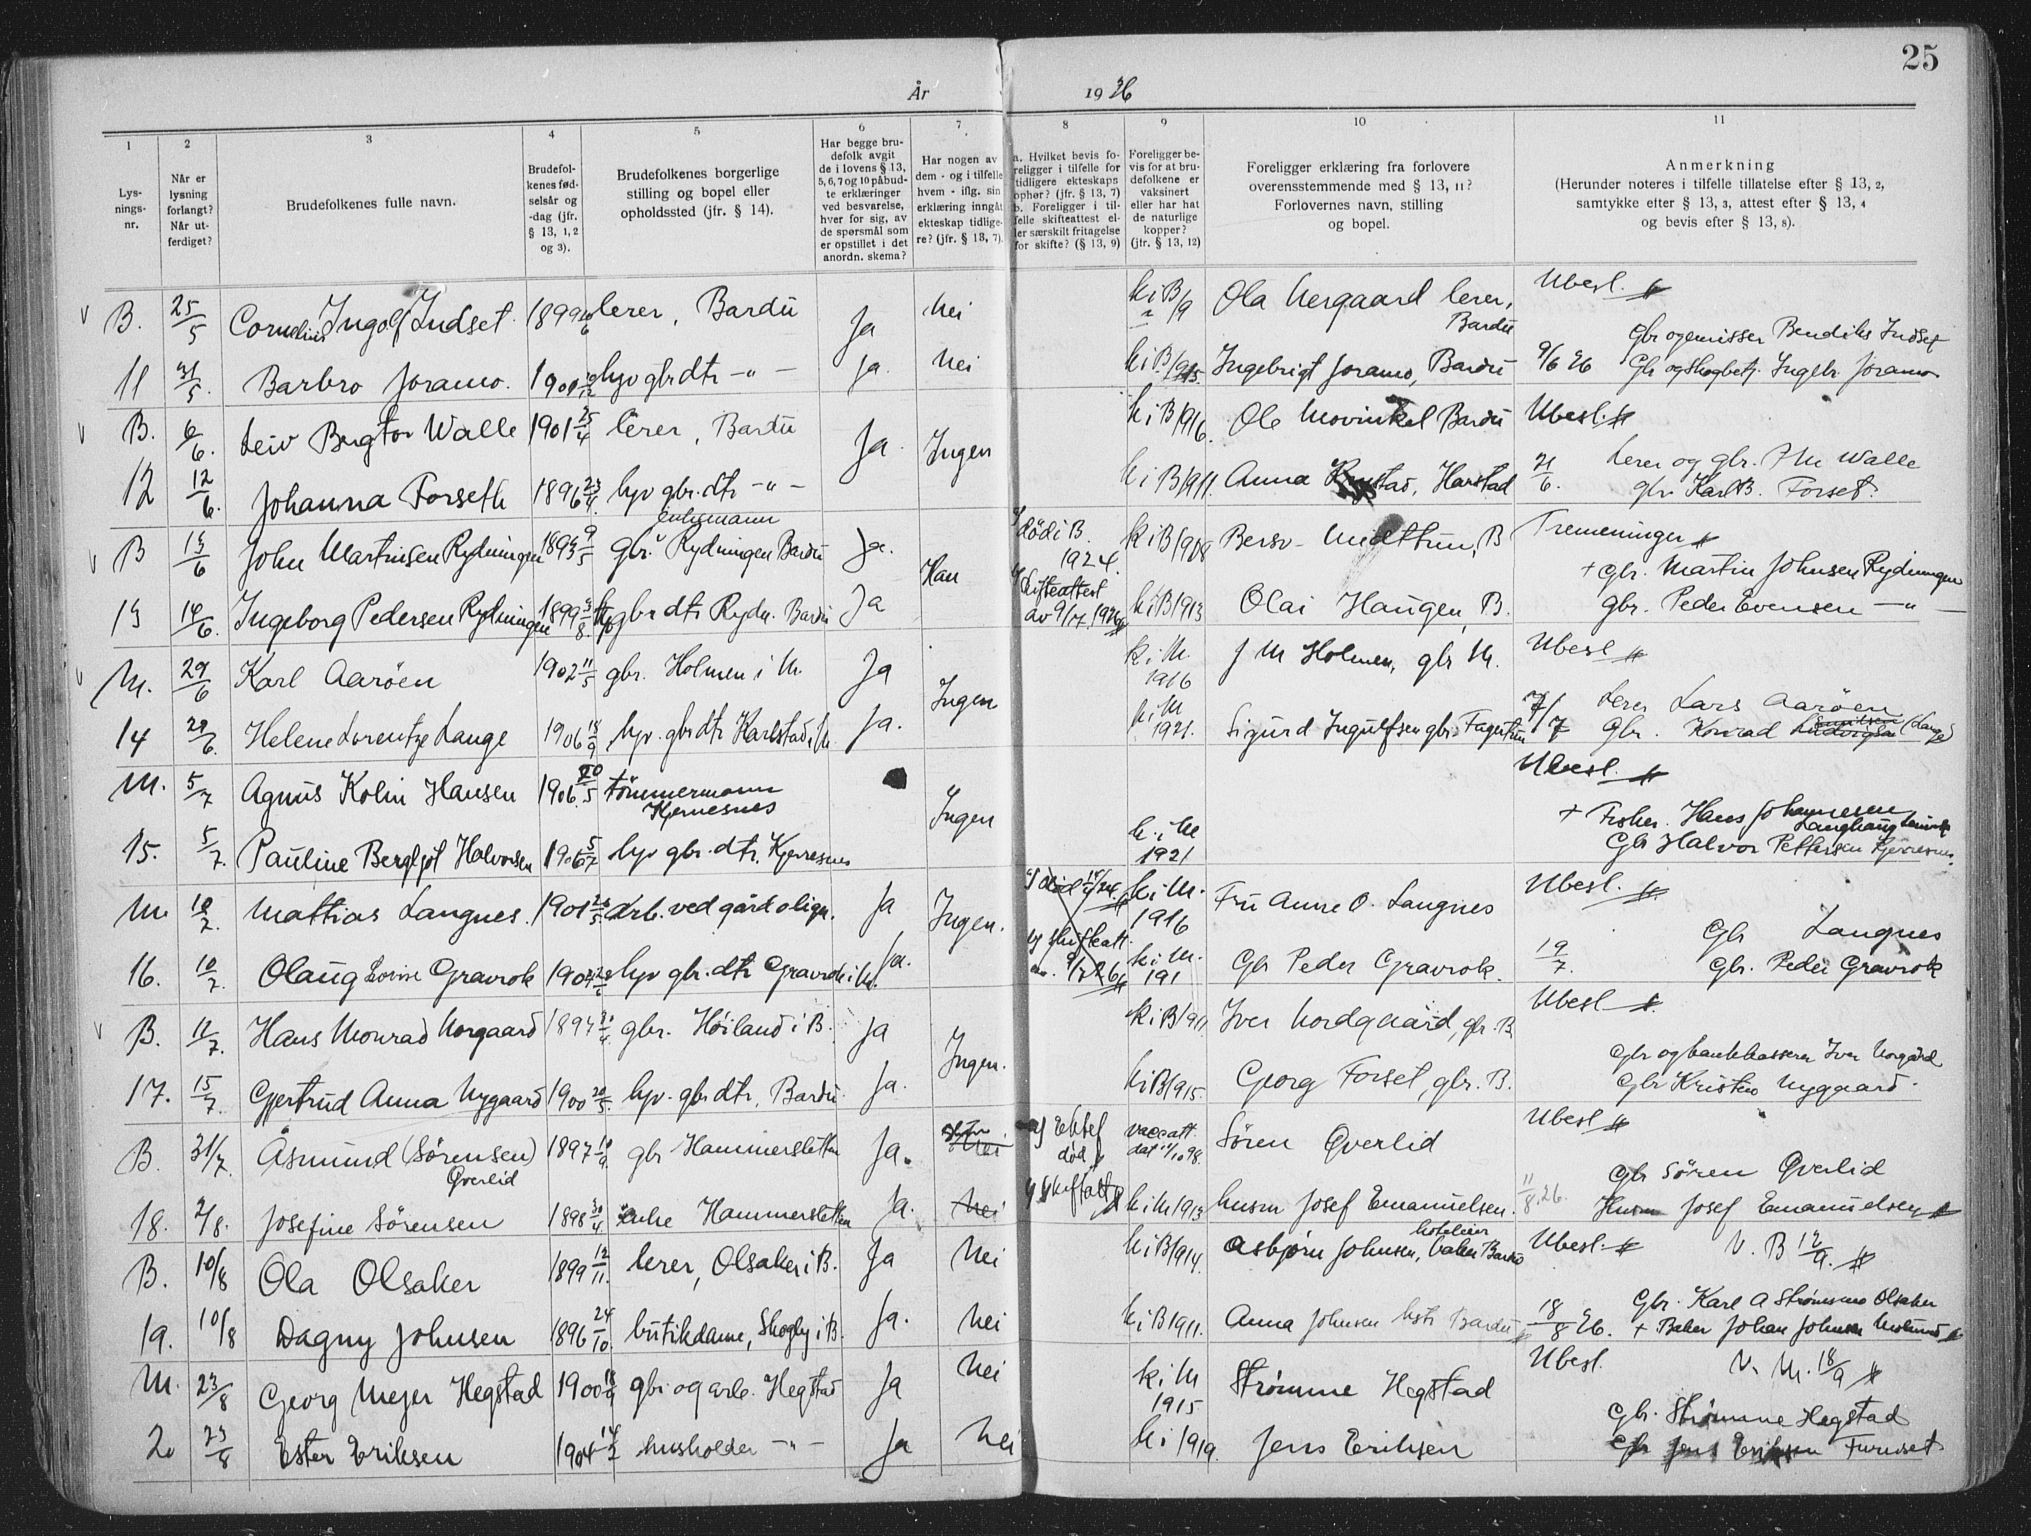 25
År 1926
1 2 3 4 5 6 7 8 9 10 11
Lysningsnr.
Når er lysning forlangt? Når utferdiget?
Brudefolkenes fulle navn.
Brudefolkenes fødselsår og -dag (jfr. § 13, 1, 2 og 3).
Brudefolkenes borgerlige stilling og bopel eller opholdssted (jfr. § 14).
Har begge brudefolk avgit de i lovens § 13, 5, 6, 7 og 10 påbudte erklæringer ved besvarelse, hver for sig, av de spørsmål som er opstillet i det anordn. skema?
Har nogen av dem - og i tilfelle hvem - iflg. sin erklæring inngåt ekteskap tidligere? (jfr. § 13, 7).
a. Hvilket bevis foreligger i tilfelle for tidligere ekteskaps ophør? (jfr. § 13, 7) b. Foreligger i tilfelle skifteattest eller særskilt fritagelse for skifte? (§ 13, 9)
Foreligger bevis for at brudefolkene er vaksinert eller har hat de naturlige kopper? (jfr. § 13, 12)
Foreligger erklæring fra forlovere overensstemmende med § 13, 11? Forlovernes navn, stilling og bopel.
Anmerkning (Herunder noteres i tilfelle tillatelse efter § 13, 2, samtykke efter § 13, 3, attest efter § 13, 4 og bevis efter § 13, 8).
B. 25/5 Cornelius Ingolf Indset 1899 lerer, Bardu Ja Nei k i B Ola Nergaard lerer, Bardu Ubesl.
Gbr og emisser Bendiks Indset
11 31/5. Barbro Joramo. 1901 hjv gbr dtr -"- Ja. Nei k i B/1915. Ingebrigt Joramo, Bardu 9/6 26 Gbr og skogbetj. Ingebr. Joramo
B. 6/6. Leiv Bergtor Walle 1901 25/4 lerer, Bardu Ja. Ingen k i B/916. Ole Movinkel Bardu Ubesl.
Lerer og gbr. Walle
12 12/6. Johanna Forseth 1896 23/4. hjv gbr. dtr -"- k i B/1911. Anna Harstad 21/6. gbr Karl B. Forset.
B 13/6 John Martinsen Rydningen 1893 9/5 enkemann gbr. Rydningen Bardu Ja. Han død i B. 1924. k i B/908 Bersv. Midttun, B Tremeninger
+ Gbr. Martin Johnsen Rydningen
13 14/6. Ingeborg Pedersen Rydningen 1899 /8. hjv gbr dtr Rydn. Bardu Ja skifteattest av 9/7. 1926 k i B/913 Olai Haugen, B. gbr. Peder Evensen -"-
M. 29/6 Karl Aarøen 1902 11/5 gbr. Holmen i M. Ja Ingen k. i M. 1916 J M Holmen, gbr M. Ubesl
Lerer Lars Aarøen
14 29/6. Helene Lorentze Lange 1906 18/9 hjv. gbr dtr Karlstad i M Ja. k i M 1921. Sigurd Ingulfsen gbr. Fagertun 7/7 Gbr. Konrad Ludvigsen (Lange)
M. 5/7 Agnus Kolin Hansen 1906 20/5 tømmermann Kjerresnes Ingen Ubesl.
+ Fisker. Hans Johannesen Langhaug
15. 5/7. Pauline Bergljot Halvorsen 1906 5/7 hjv gbr. dtr. Kjerresnes k. i M 1921 Gbr Halvor Pettersen Kjerresnes.
M. 10/7. Mattias Langnes. 1901 26/5 Arb. ved gård o lign. Ja Ingen. k i M. 1916 Fru Anne O. Langnes Ubesl.
Gbr Langnes
16. 10/7 Olaug Lovise Gravrok hjv gbr. dtr Gravrok i M. Ja. k. i M. 191 Gbr Peder Gravrok. 19/7. Gbr. Peder Gravrok
B. 11/7. Hans Monrad Norgaard 1894 gbr. Høiland i B. Ja Ingen. k i B/911 Iver Nordgaard, gbr. B Ubesl
Gbr og bankkasserer Iver Norgård
17. 15/7. Gjertrud Anna Nygaard 1900 20/5. hjv. gbr dtr, Bardu. Ja. k i B/915. Georg Forset, gbr. B. Gbr Kristen Nygaard.
B. 31/7. Åsmund (Sørensen) Qverlid 1897 10/9. gbr Hammersletten Ja. Nei a) Ektef død vacc att. dat 11/10 98. Søren Qverlid Ubesl
Gbr Søren Qverlid
18. 2/8. Josefine Sørensen 1898 30/4 enke Hammersletten Ja. Nei k i M/1913 husm Josef Emanuelsen. 11/8.26. Husm Josef Emanuelsen
B. 10/8 Ola Olsaker 1899 12/11. lerer, Olsaker i B. Ja Nei k i B/1914. Asbjørn Johnsen, Bardu Ubesl. V. B 12/9.
Gbr. Karl A Strømsmo Olsaker
19. 10/8 Dagny Johnsen 1896 24/10. butikdame, Skogly i B. Ja. Nei k i B/1911. Anna Johnsen Bardu 18/8 26. + Baker Johan Johnsen
M. 23/8 Georg Mejer Hegstad 1900 gbr og arb. Hegstad Ja Nei k. i M 1915 Strømme Hegstad Ubesl. V. M. 18/9
Gbr. Strømme Hegstad
20 23/8 Ester Eriksen 1904 husholder -"- Ja Nei k i 1919. Jens Eriksen Gbr Jens Eriksen Furuset